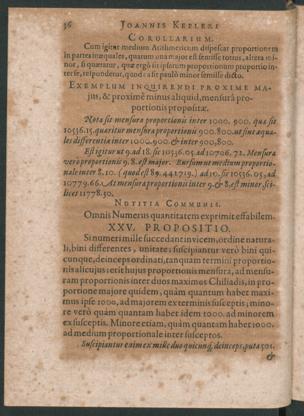 36 JOANNIS KEPLERI
COROLLARIUM.
Cum igitur medium Arithmeticum dispescat proportionem
in partes inæquales, quarum una major est semisse totius, altera mi-
nor, si quæratur, quæ ergò sit ipsarum proportionum proportio in-
ter se, respondetur, quod ea sit paulò minor semisse dicto.
EXEMPLUM INQUIRENDI PROXIME MA-
jus, & proximè minus aliquid, mensurâ pro-
portionis propositæ.
Nota sit mensura proportionis inter 1000. 900. quæ sit
10536.15. quæritur mensura proportionis 900. 800. ut sint æqua-
les differentiæ inter 1000. 900 & inter 900, 800.
Est igitur ut 9. ad 18. sic 10536.05. ad 10706.72. Mensura
verò proportionis 9. 8. est major. Rursum ut medium proportio-
nale inter 8. 10. (quod est 89.441719.) ad 10. sic 10536.05. ad
10779.66. At mensura proportionis inter 9. & 8. est minor, sci-
licet 11778.30.
NOTITIA COMMUNIS.
Omnis Numerus quantitatem exprimit effabilem.
XXV. PROPOSITIO.
Si numeri mille succedant invicem, ordine natura-
li, bini differentes, unitate; suscipiantur verò bini qui-
cunque, deinceps ordinati, tanquam termini proportio-
nis alicujus: erit hujus proportionis mensura, ad mensu-
ram proportionis inter duos maximos Chiliadis, in pro-
portione majore quidem, quàm quantum habet maxi-
mus ipse 1000, ad majorem ex terminis susceptis; mino-
re verò quàm quantum habet idem 1000. ad minorem
ex susceptis. Minore etiam, quàm quantum habet 1000.
ad medium proportionale inter suscepta.
Suscipiantur enim ex mille duo quicunq, deinceps, puta 501.
&